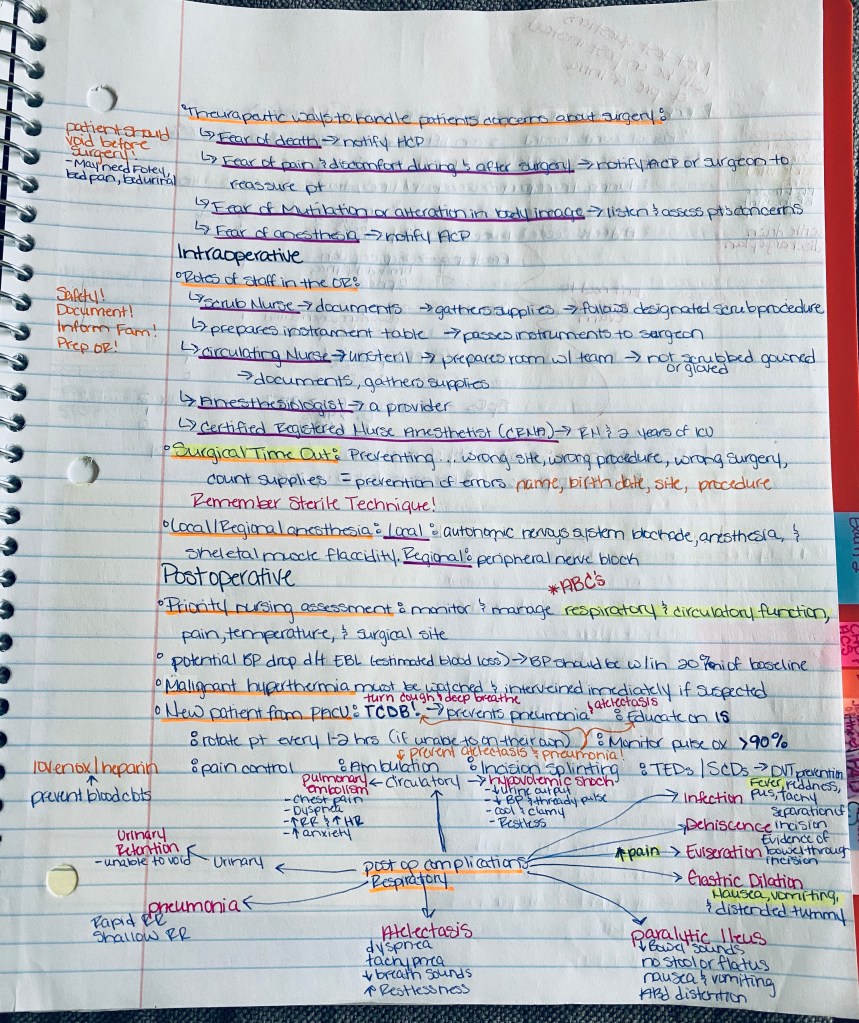 ◦Theurapeutic ways to handle patients concerns about surgery:
patient should
void before
surgery!
- May need Foley,
bed pan, bed urinal
↳ Fear of death → notify HCP
↳ Fear of pain & discomfort during & after surgery → notify ACP or surgeon to
reassure pt
↳ Fear of Mutilation or alteration in body image → listen & assess pts concerns
↳ Fear of anesthesia → notify ACP
Intraoperative
◦Roles of staff in the OR:
Safety!
Document!
Inform Fam!
Prep OR!
↳ Scrub Nurse → documents → gathers supplies → follows designated scrub procedure
↳ prepares instrament table → passes instruments to surgeon
↳ Circulating Nurse → unsteril → prepares room w/ team → not scrubbed gowned
or gloved
→ documents, gathers supplies
↳ Anesthesiologist → a provider
↳ Certified Registered Nurse Anesthetist (CRNA) → RN & 2 years of ICU
◦Surgical Time Out: Preventing... wrong site, wrong procedure, wrong surgery,
count supplies = prevention of errors name, birth date, site, procedure
Remember Sterile Technique!
◦Local/Regional anesthesia: Local: autonomic nervys system blockade, anesthesia, &
skeletal muscle flaccidity. Regional: peripheral nerve block
Postoperative
*ABC's
◦Priority nursing assessment: monitor & manage respiratory & circulatory function,
pain, temperature, & surgical site
◦ potential BP drop d/t EBL (estimated blood loss) → BP should be w/in 20% of baseline
◦Malignant hyperthermia must be watched & interveined immediately if suspected
turn cough & deep breathe
& atelectasis
◦New patient from PACU: TCDB! → prevents pneumonia : Educate on IS
: rotate pt every 1-2 hrs (if unable to on their own) : Monitor pulse ox >90%
↳ prevent atelectasis & pneumonia!
: pain control : Ambulation : Incision splinting : TEDs / SCDs → DVT prevention
lovenox/heparin
↑
prevent blood clots
pulmonary embolism ← Circulatory → hypovolemic shock
- Chest pain
- Dyspnea
- ↑RR & ↑HR
- ↑ anxiety
- ↓ urine output
- ↓ BP & thready pulse
- cool & clamy
- Restless
Infection
Fever, redness,
pus, tachy
Dehiscence
Separation of
incision
↑pain → Eviseration
Evidence of
bowel through
incision
Gastric Dilation
Nausea, vomiting,
& distended tummy
Urinary
Retention
- unable to void
Urinary
post op complications
Respiratory
pneumonia
Rapid RR
Shallow RR
Atelectasis
dyspnea
tachypnea
↓ breath sounds
↑ Restlessness
paralytic Ileus
↓ Bowel sounds
no stool or flatus
nausea & vomiting
ABD distention